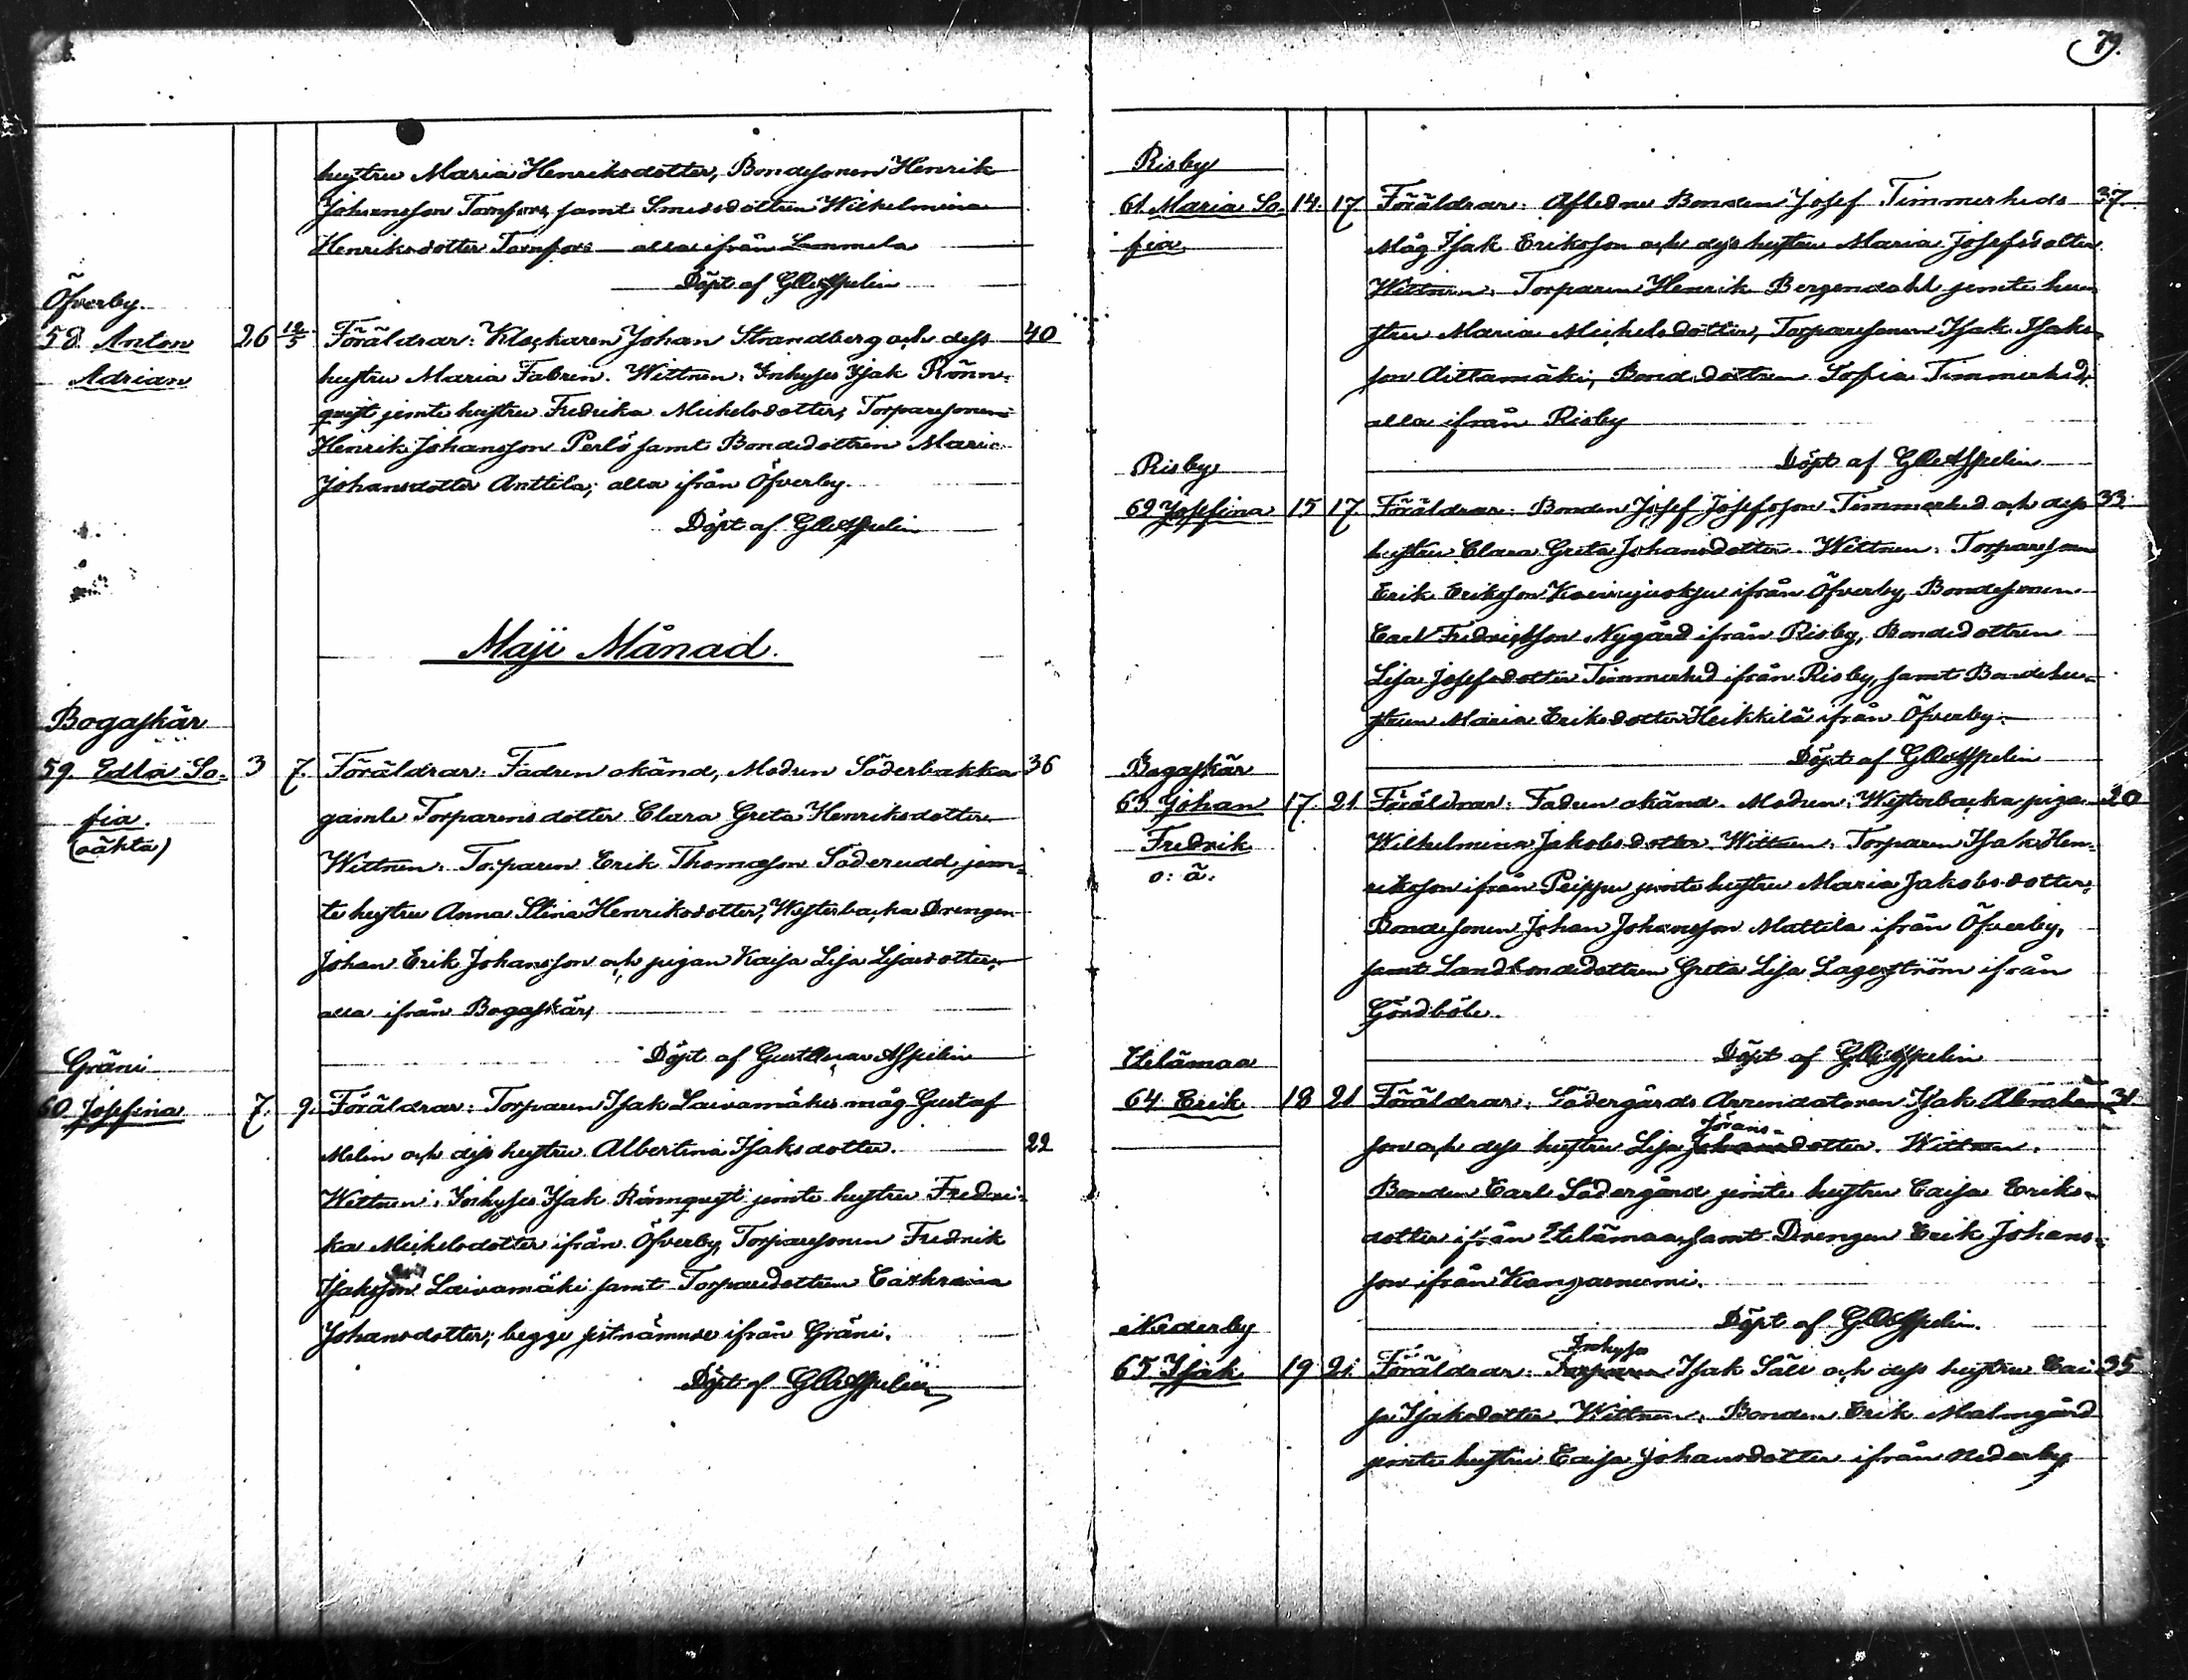 79.
hustru Maria Henriksdotter, Bondesonen Henrik
Johansson Tornfors, samt Smedsdottren Wilhelmina
Henriksdotter Tornfors alla ifrån Lammela
Döpt af G O Aspelin
Öfverby.
58. Anton 26 12/5 Föräldrar: Klockaren Johan Strandberg och dess 40
Adrian hustru Maria Fabrin. Wittnen: Inhyses Isak Rönn-
quist jemte hustru Fredrika Michelsdotter, Torparesonen
Henrik Johansson Perlö samt Bondedottren Maria
Johansdotter Anttila; alla ifrån Öfverby.
Döpt af G O Aspelin
Maji Månad.
Bogaskär
59. Edla So- 3 7. Föräldrar: Fadren okänd, Modren Söderbakka 36
fia. gamle Torparens dotter Clara Greta Henriksdotter.
(oäkta)
Wittnen: Torparen Erik Thomasson Söderudd jem-
te hustru Anna Stina Henriksdotter, Westerbacka Drengen
Johan Erik Johansson och pigan Kaisa Lisa Lisasdotter,
alla ifrån Bogaskär,
Döpt af Gust Aspelin
Gräni
60. Josefina 7. 9. Föräldrar: Torparen Isak Laivamäkis måg Gustaf
Melin och dess hustru Albertina Isaksdotter. 22
Wittnen: Inhyses Isak Rönnquist jemte hustru Fredri-
ka Michelsdotter ifrån Öfverby, Torparesonen Fredrik
Isaksson Laivamäki samt Torparedottren Cathrina
Johansdotter; begge sistnämnde ifrån Gräni.
Döpt af G O Aspelin
Risby
61. Maria So- 14. 17. Föräldrar: Aflidne Bonden Josef Timmerheds 37.
fia måg Isak Eriksson och dess hustru Maria Josefsdotter
Wittnen: Torparen Henrik Bergendahl jemte hu-
stru Maria Michelsdotter, Torparesonen Isak Isaks-
son Aittamäki, Bondedottren Sofia Timmerhed,
alla ifrån Risby
Döpt af G O Aspelin
Risby
62 Josefina 15 17. Föräldrar: Bonden Josef Josefsson Timmerhed och dess 33.
hustru Clara Greta Johansdotter. Wittnen: Torparesonen
Erik Eriksson ifrån Öfverby, Bondesonen
Carl Fredriksson Nygård ifrån Risby, Bondedottren
Lisa Josefsdotter Timmerhed ifrån Risby, samt Bondehu-
strun Maria Eriksdotter Heikkilä ifrån Öfverby.
Döpt af G O Aspelin
Bogaskär
63 Johan 17. 21 Föräldrar: Fadren okänd. Modren: Westerbacka piga 20
Fredrik Wilhelmina Jakobsdotter. Wittnen: Torparen Isak Hen-
o: ä. riksson ifrån Peippu jemte hustru Maria Jakobsdotter,
Bondesonen Johan Johansson Mattila ifrån Öfverby,
samt Landbondedottren Greta Lisa Lagerström ifrån
Gördböle.
Döpt af G O Aspelin
Etelämaa
64 Erik 18 21 Föräldrar: Södergårds Arrendatoren Isak Abraham- 31.
Görans-
son och dess hustru Lisa Johansdotter. Wittnen:
Bonden Carl Södergård jemte hustru Caisa Eriks-
dotter ifrån Etelämaa, samt Drengen Erik Johans-
son ifrån Kangasniemi.
Döpt af G O Aspelin.
Nederby
Inhyses
65 Isak 19 21. Föräldrar: Torparen Isak Säll och dess hustru Cai- 35
sa Isaksdotter. Wittnen: Bonden Erik Malmgård
jemte hustru Caisa Johansdotter ifrån Nederby